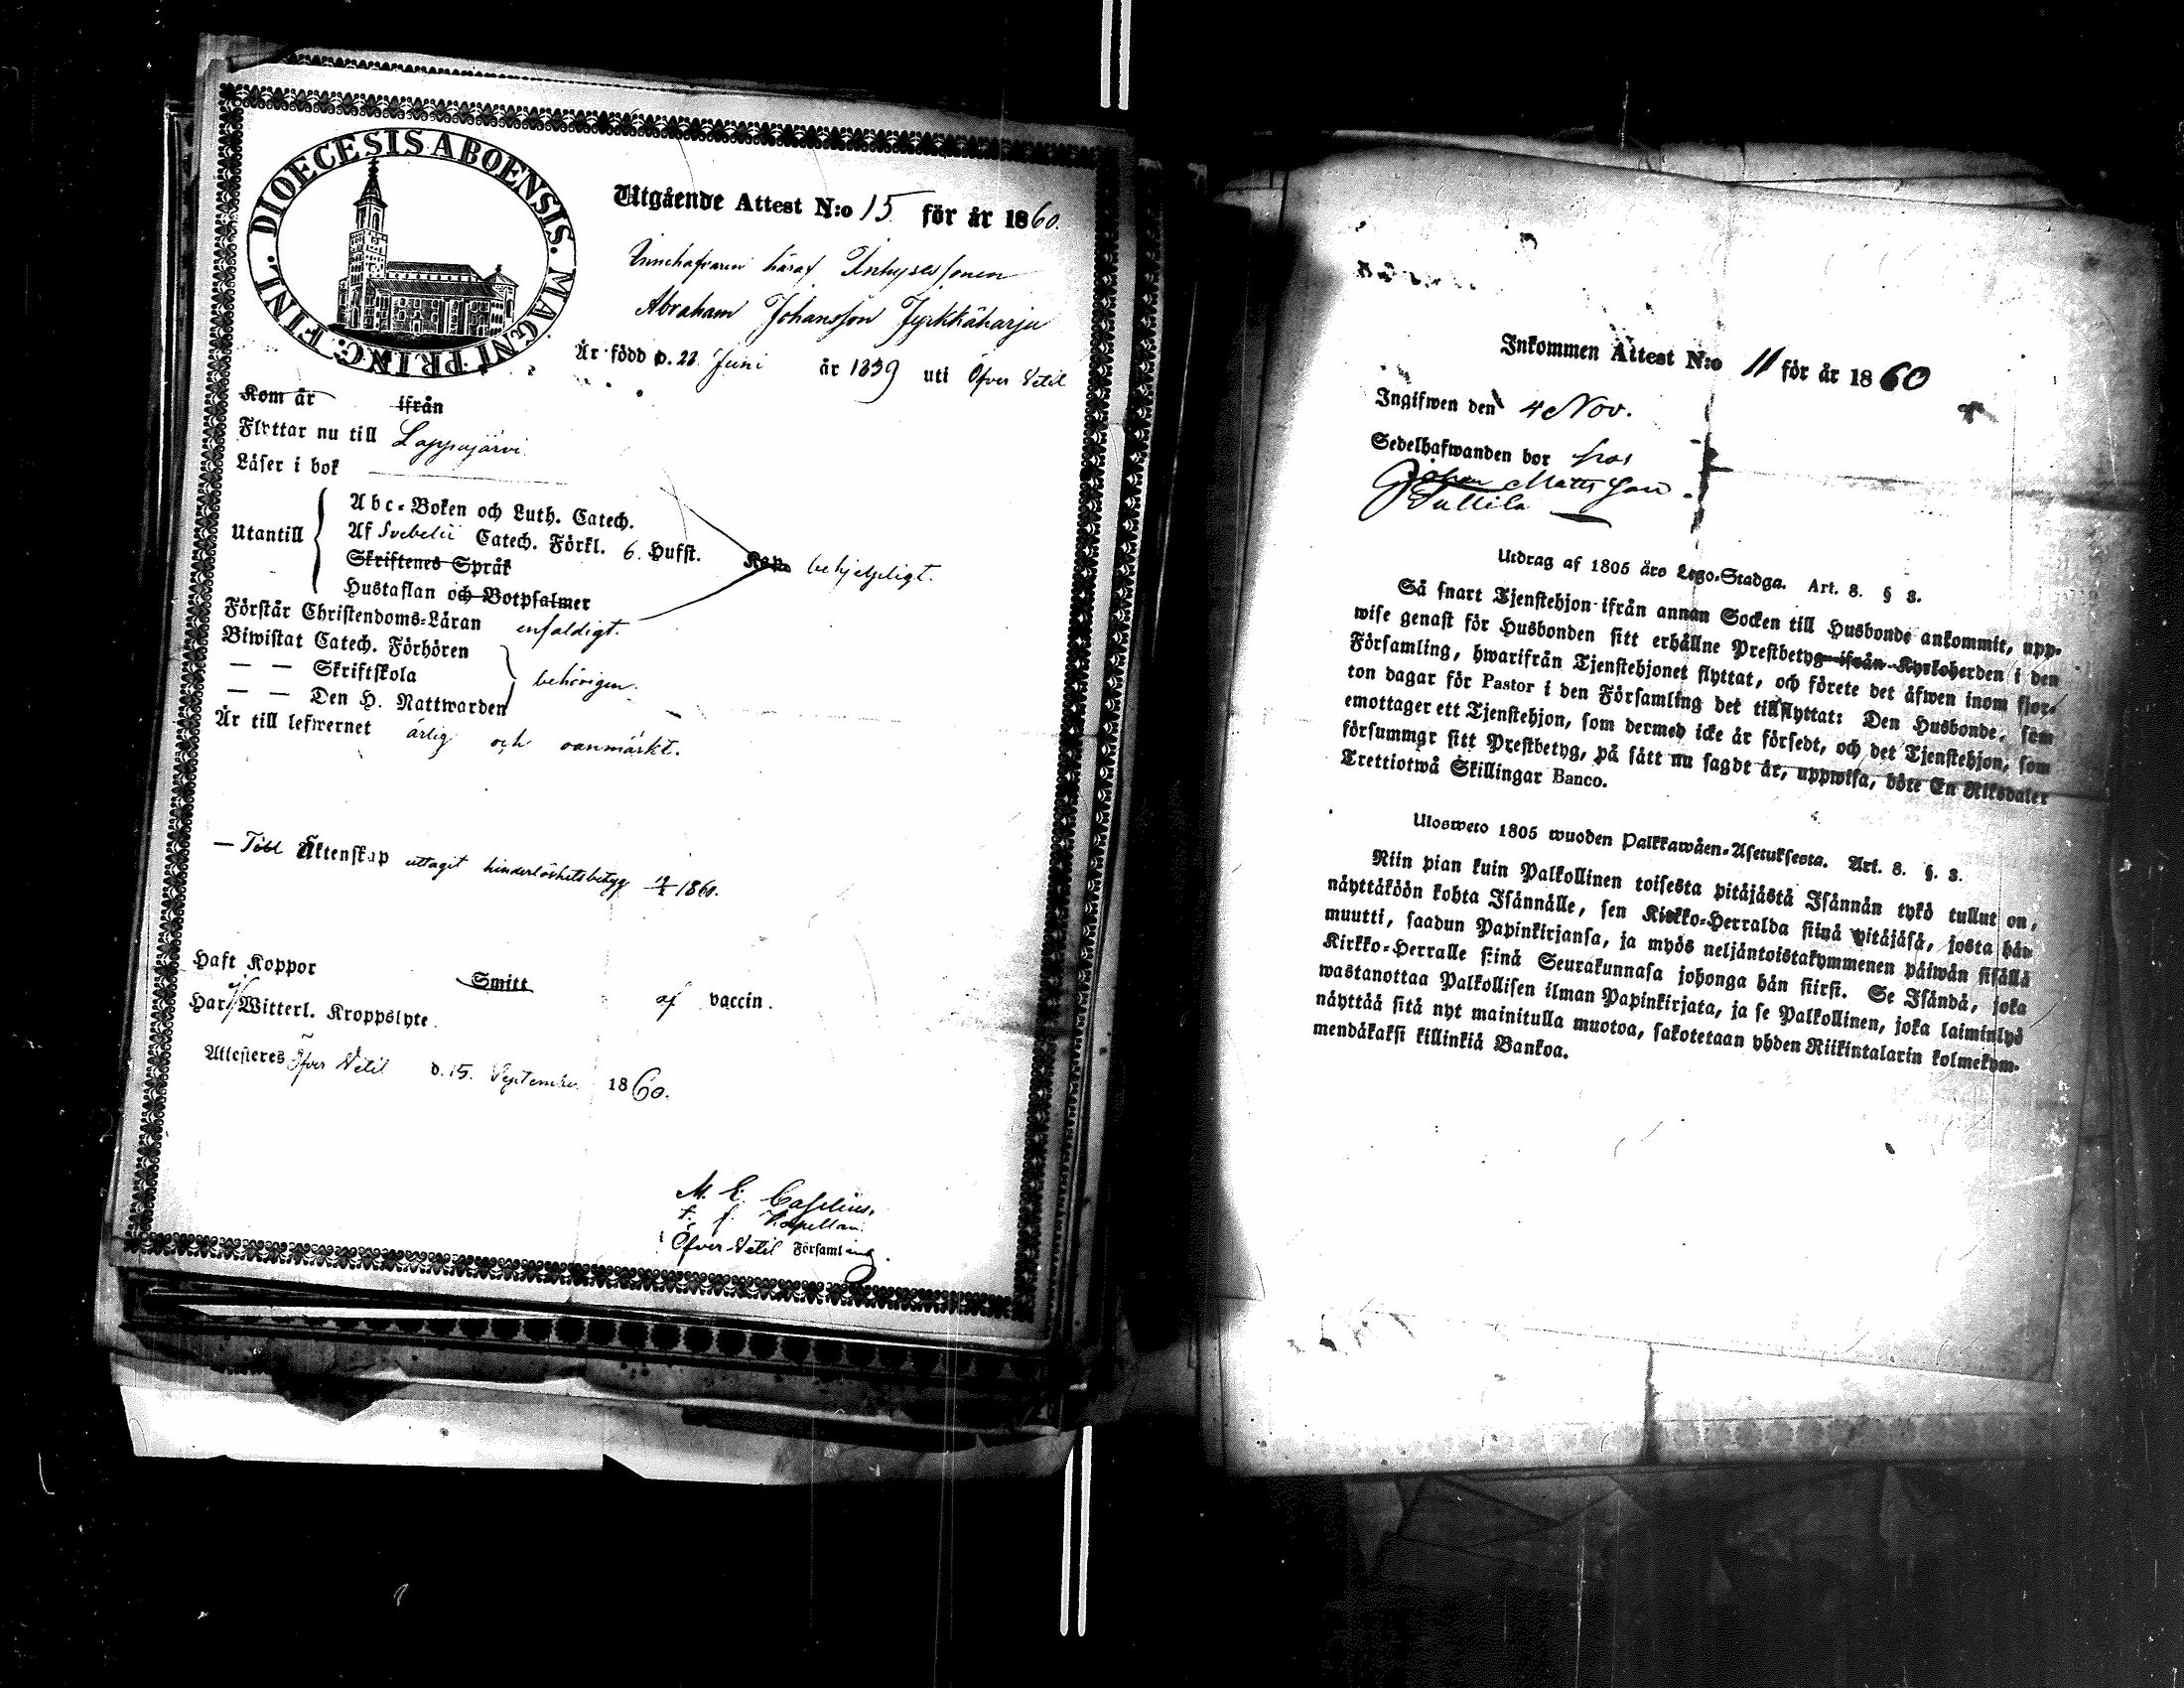 DIOECESIS ABOENSIS. MAGNI PRINC: FINL.
Utgående Attest N:o 15 för år 1860.
Innehafvaren häraf Inhysessonen
Abraham Johansson Jyrkkäharju
Är född d. 22 Juni år 1839 uti Öfver Vetil
Kom år ifrån
Flyttar nu till Lappajärvi
Läser i bok
Abc-Boken och Luth. Catech.
Utantill Af Svebelii Catech. Förkl. 6. Hufst. Kap. behjelpligt.
Skriftenes Språk
Hustaflan och Botpsalmer
Förstår Christendoms-Läran enfaldigt.
Biwistat Catech. Förhören
— — Skriftskola behörigen.
— — Den H. Nattwarden
Är till lefwernet ärlig och oanmärkt.
— Till Äktenskap uttagit hinderlöshetsbetyg 1860.
Haft Koppor Smitt af vaccin.
Har Witterl. Kroppslyte.
Attesteras Öfver Vetil d. 15. September 1860.
M. E.
t. f. Kapellan
i Öfver-Vetil Församling.
Inkommen Attest N:o 11 för år 1860
Ingifwen den 4 Nov.
Sedelhafwanden bor hos
Johan Mattsson
Tullila
Utdrag af 1805 års Lego-Stadga. Art. 8. § 8.
Så snart Tjenstehjon ifrån annan Socken till Husbonde ankommit, upp-
wise genast för Husbonden sitt erhållne Prestbetyg ifrån Kyrkoherden i den
Församling, hwarifrån Tjenstehjonet flyttat, och förete det äfwen inom fjor-
ton dagar för Pastor i den Församling det tillflyttat: Den Husbonde, som
emottager ett Tjenstehjon, som dermed icke är försedt, och det Tjenstehjon, som
försummar sitt Prestbetyg, på sätt nu sagdt är, uppwisa, böte En Riksdaler
Trettiotwå Skillingar Banco.
Ulosweto 1805 wuoden Palkkawäen-Asetuksesta. Art. 8. §. 8.
Niin pian kuin Palkollinen toisesta pitäjästä Isännän tykö tullut on,
näyttäköön kohta Isännälle, sen Kirkko-Herralda siinä pitäjäsä, josta hän
muutti, saadun Papinkirjansa, ja myös neljäntoistakymmenen päiwän sisällä
Kirkko-Herralle siinä Seurakunnasa johonga hän siirsi. Se Isändä, joka
wastanottaa Palkollisen ilman Papinkirjata, ja se Palkollinen, joka laiminlyö
näyttää sitä nyt mainitulla muotoa, sakotetaan yhden Riikintalarin kolmekym-
mendäkaksi killinkiä Bankoa.